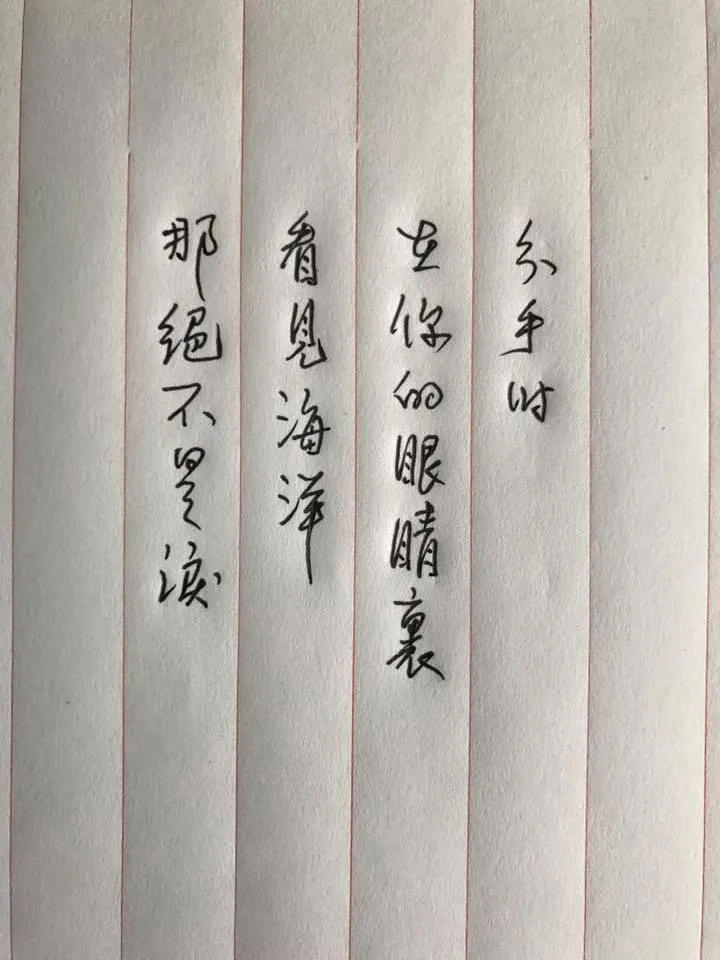 分手时
在你的眼睛裏
看見海洋
那絕不是淚